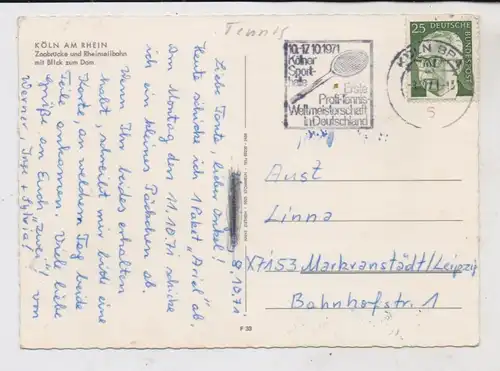 Tennis
KÖLN AM RHEIN
Zoobrücke und Rheinseilbahn
mit Blick zum Dom
8.10.71
Liebe Tante, lieber Onkel!
Heute schicke ich 1 Paket „Ariel" ab.
Am Montag den 11.10.71 schicke
ich ein kleines Päckchen ab.
Wenn Ihr beides erhalten
habt, schreibt mir bitte eine
Karte, an welchem Tag beide
Teile ankamen. Viele liebe
Grüße an Euch „zwei" von
Werner, Inge + Sylvia!
10.-17.10.1971
Kölner
Sport-
halle
Erste
Profi-Tennis-
Weltmeisterschaft
in Deutschland
25
DEUTSCHE BUNDESPOST
KÖLN
5
Aust
Linna
X7153 Markranstädt/Leipzig
Bahnhofstr. 1
F 33